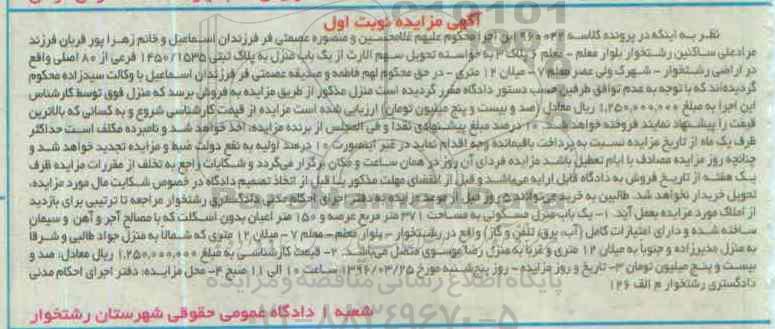 آگهی مزایده نوبت اول
نظر به اینکه در پرونده کلاسه ۹۶۰۰۲۲ این اجرا محکوم علیهم غلامحسین و منصوره عصمتی فر فرزندان اسماعیل و خانم زهرا پور قربان فرزند
مرادعلی ساکنین رشتخوار بلوار معلم - معلم ۶ پلاک ۳ به خواسته تحویل سهم الارث از یک باب منزل به پلاک ثبتی ۱۴۵۰/۱۵۳۵ فرعی از ۸۰ اصلی واقع
در اراضی رشتخوار - شهرک ولی عصر معلم ۷ - میلان ۱۲ متری - در حق محکوم لهم فاطمه و صدیقه عصمتی فر فرزندان اسماعیل با وکالت سیدزاده محکوم
گردیده‌اند که با توجه به عدم توافق طرفین حسب دستور دادگاه مقرر گردیده است منزل مذکور از طریق مزایده به فروش برسد که منزل فوق توسط کارشناس
این اجرا به مبلغ ۱,۲۵۰,۰۰۰,۰۰۰ ریال معادل (صد و بیست و پنج میلیون تومان) ارزیابی شده است مزایده از قیمت کارشناسی شروع و به کسانی که بالاترین
قیمت را پیشنهاد نمایند فروخته خواهد شد. ۱۰ درصد مبلغ پیشنهادی نقدا و فی المجلس از برنده مزایده، اخذ خواهد شد و نامبرده مکلف است حداکثر
ظرف یک ماه از تاریخ مزایده نسبت به پرداخت باقیمانده وجه اقدام نماید در غیر اینصورت ۱۰ درصد اولیه به نفع دولت ضبط و مزایده تجدید خواهد شد و
چنانچه روز مزایده مصادف با ایام تعطیل باشد مزایده فردای آن روز در همان ساعت و مکان برگزار می‌گردد و شکایات راجع به تخلف از مقررات مزایده ظرف
یک هفته از تاریخ فروش به دادگاه قابل ارایه می‌باشد و قبل از انقضای مهلت مذکور یا قبل از اتخاذ تصمیم دادگاه در خصوص شکایت مال مورد مزایده،
تحویل خریدار نخواهد شد. طالبین به خرید می‌توانند ۵ روز قبل از موعد مزایده به دفتر اجرای احکام مدنی دادگستری رشتخوار مراجعه تا ترتیبی برای بازدید
از املاک مورد مزایده بعمل آید ۱- یک باب منزل مسکونی به مساحت ۳۷۱ متر مربع عرصه و ۱۵۰ متر اعیان بدون اسکلت که با مصالح آجر و آهن و سیمان
ساخته شده و دارای امتیازات کامل (آب، برق، تلفن و گاز) واقع در رشتخوار - بلوار معلم - معلم ۷ - میلان ۱۲ متری که شمالا به منزل جواد طالبی و شرقا
به منزل مدیرزاده و جنوبا به میلان ۱۲ متری و غربا به منزل رضا موسوی متصل می‌باشد. ۲- قیمت کارشناسی به مبلغ ۱,۲۵۰,۰۰۰,۰۰۰ ریال معادل: صد و
بیست و پنج میلیون تومان ۳- تاریخ و روز مزایده - روز پنج‌شنبه مورخ ۱۳۹۶/۰۳/۲۵ ساعت ۱۰ الی ۱۱ صبح ۴- محل مزایده: دفتر اجرای احکام مدنی
دادگستری رشتخوار م الف ۱۲۶
شعبه ۱ دادگاه عمومی حقوقی شهرستان رشتخوار
پایگاه اطلاع رسانی مناقصه و مزایده